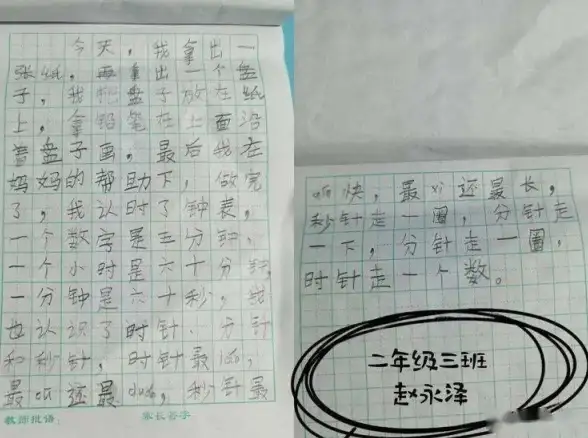 今天，我拿出一
张纸，再拿出一个盘
子，我把盘子放在纸
上，拿铅笔在上面沿
着盘子画，最后我在
妈妈的帮助下，做完
了，我认时了钟表，
一个数字是五分钟，
一个小时是六十分钟，
一分钟是六十秒，我
也认识了时针、分针
和秒针，时针最
最 还最 ，秒针最
教师批语：
家长签字
快，最xi还最长，
秒针走一圈，分针走
一下，分针走一圈，
时针走一个数。
二年级三班
赵永泽